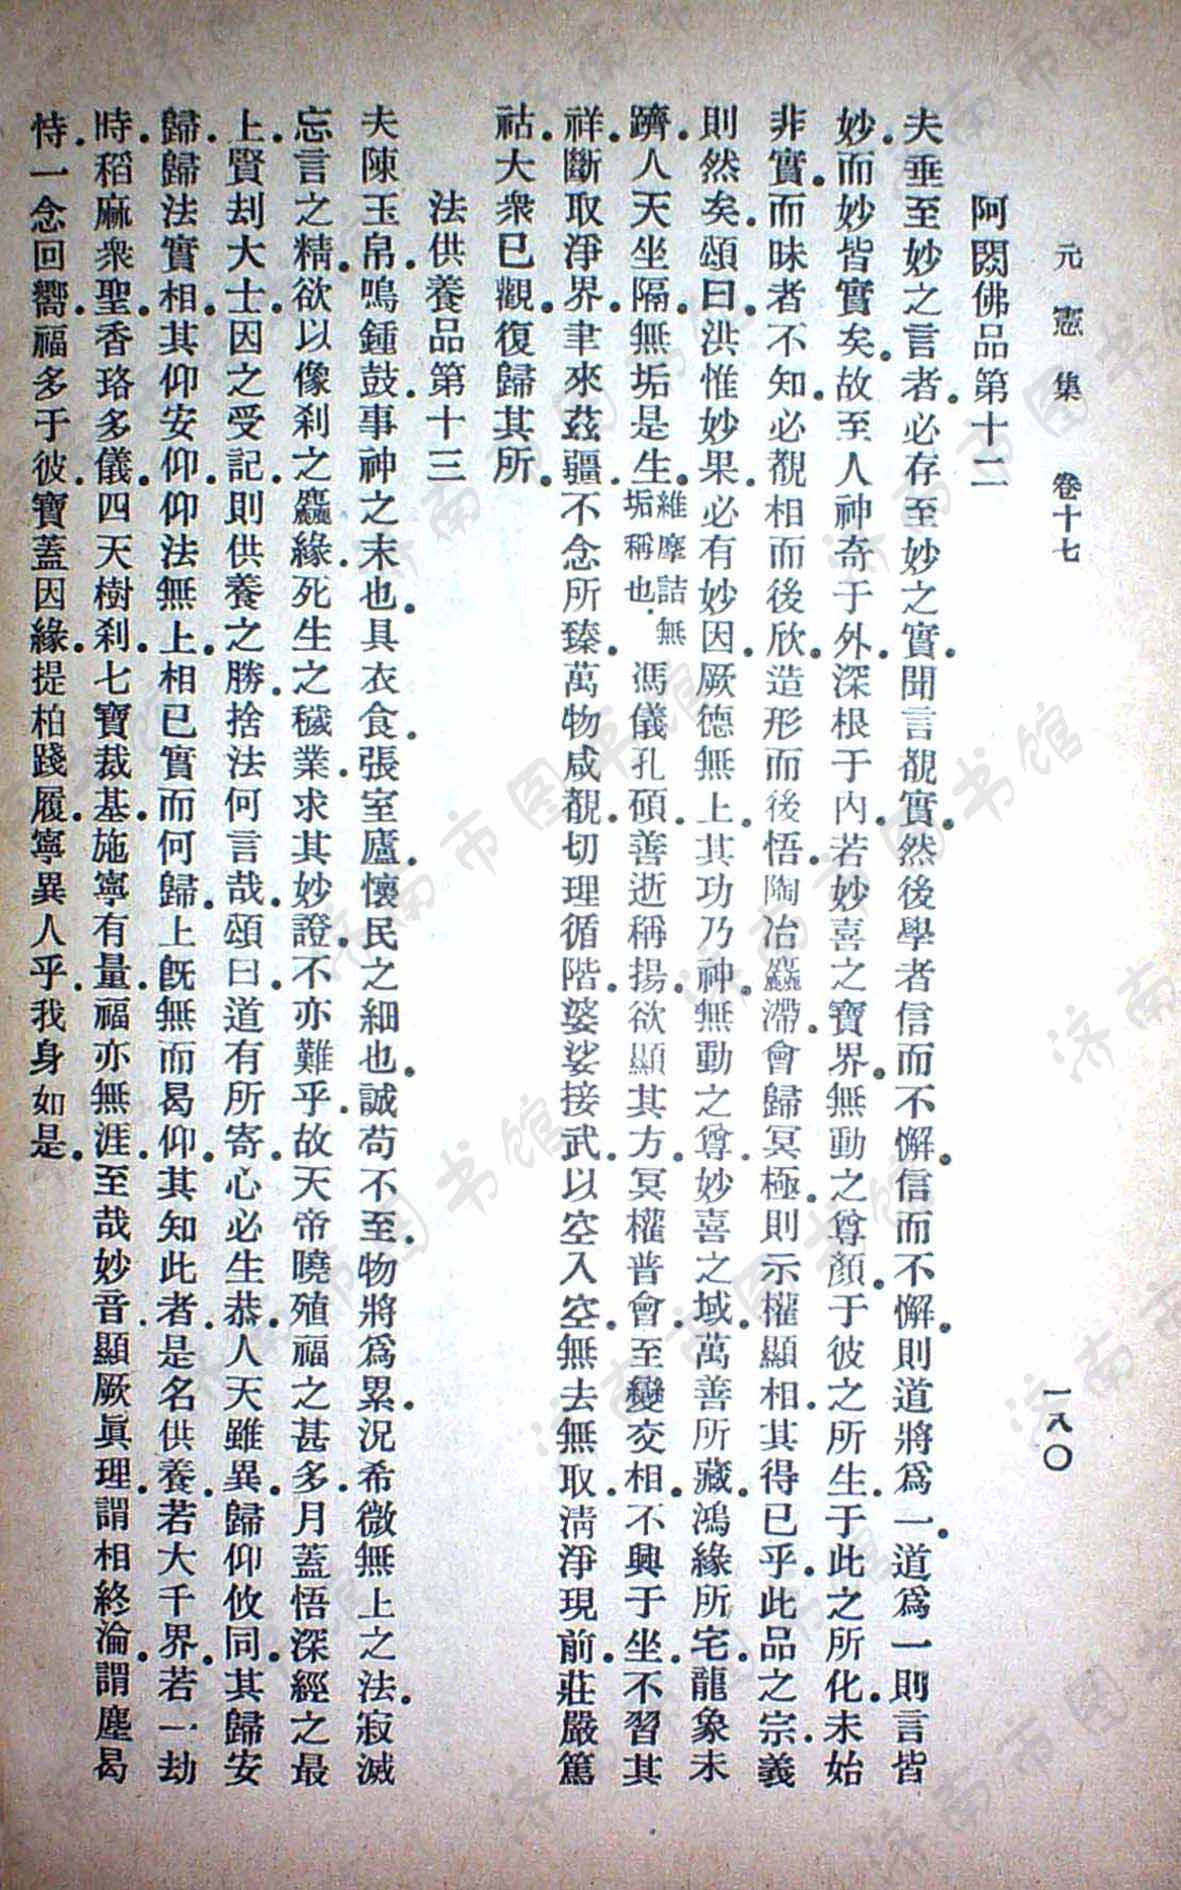 元憲集 卷十七 一八〇
阿閦佛品第十二
夫垂至妙之言者必存至妙之實聞言覩實然後學者信而不懈信而不懈則道將爲一道爲一則言皆
妙而妙皆實矣故至人神奇于外深根于內若妙喜之寶界無動之尊顏于彼之所生于此之所化未始
非實而昧者不知必覩相而後欣造形而後悟陶冶麤滯會歸冥極則示權顯相其得已乎此品之宗義
則然矣頌曰洪惟妙果必有妙因厥德無上其功乃神無動之尊妙喜之域萬善所藏鴻緣所宅龍象未
躋人天坐隔無垢是生維摩詰無垢稱也馮儀孔碩善逝稱揚欲顯其方冥權普會至變交相不興于坐不習其
祥斷取淨界聿來茲疆不念所臻萬物咸覩切理循階婆娑接武以空入空無去無取淸淨現前莊嚴篤
祜大衆已觀復歸其所
法供養品第十三
夫陳玉帛鳴鍾鼓事神之末也具衣食張室廬懷民之細也誠苟不至物將爲累況希微無上之法寂滅
忘言之精欲以像刹之麤緣死生之穢業求其妙證不亦難乎故天帝曉殖福之甚多月蓋悟深經之最
上賢刦大士因之受記則供養之勝捨法何言哉頌曰道有所寄心必生恭人天雖異歸仰攸同其歸安
歸歸法實相其仰安仰仰法無上相已實而何歸上旣無而曷仰其知此者是名供養若大千界若一劫
時稻麻衆聖香珞多儀四天樹刹七寶裁基施寧有量福亦無涯至哉妙音顯厥眞理謂相終淪謂塵曷
恃一念回嚮福多于彼寶蓋因緣提柏踐履寧異人乎我身如是
济南市图书馆